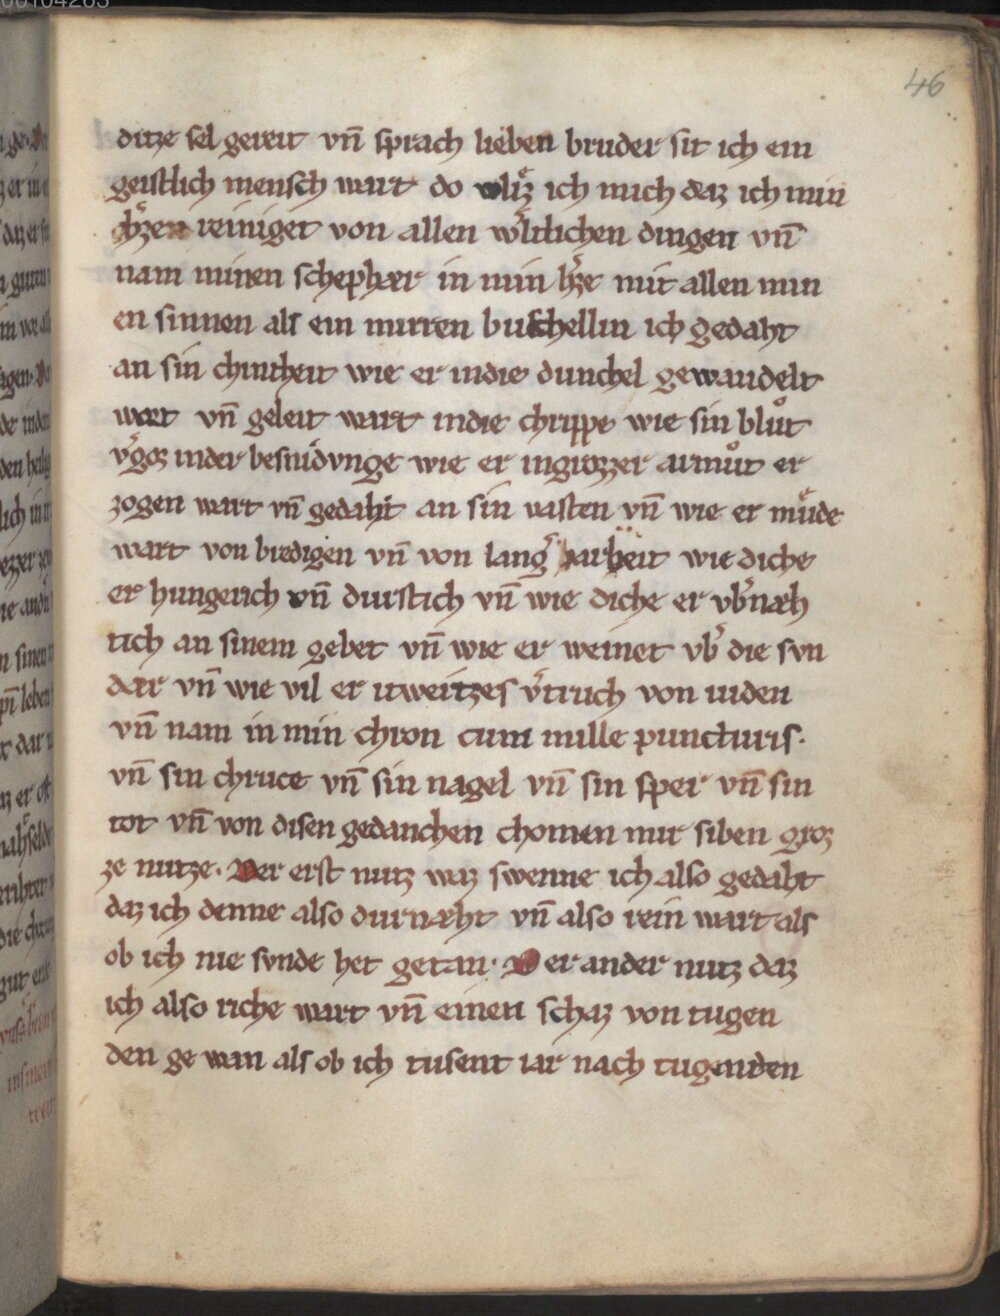 46
ditze sel gereit vn̄ sprach lieben bruder sit ich ein
geistlich mensch wart do vleiz ich mich daz ich min
h̓zen reiniget von allen w̓ltlichen dingen vn̄
nam minen schephær in min h̓ze mit allen min
en sinnen als ein mirren buschellin ich gedaht
an sin chintheit wie er indie dunchel gewandelt
wart vn̄ geleit wart indie chrippe wie sin blůt
v̓goz inder besnidvnge wie er ingrozzer armůt er
zogen wart vn̄ gedaht an sin vasten vn̄ wie er můde
wart von bredigen vn̄ von lang̓ arbeit wie diche
er hungerich vn̄ durstich vn̄ wie diche er vb̓næh
tich an sinem gebet vn̄ wie er weinet vb̓ die svn
dær vn̄ wie vil er itweitzes v̓truch von iuden
vn̄ nam in min chron cum mille puncturis.
vn̄ sin chruce vn̄ sin nagel vn̄ sin sper vn̄ sin
tot vn̄ von disen gedanchen chomen mir siben groz
ze nutze. Der erst nutz waz swenne ich also gedaht
daz ich denne also durnæht vn̄ also rein wart als
ob ich nie svnde het getan. Der ander nutz daz
ich also riche wart vn̄ einen schaz von tugen
den ge wan als ob ich tusent iar nach tugenden